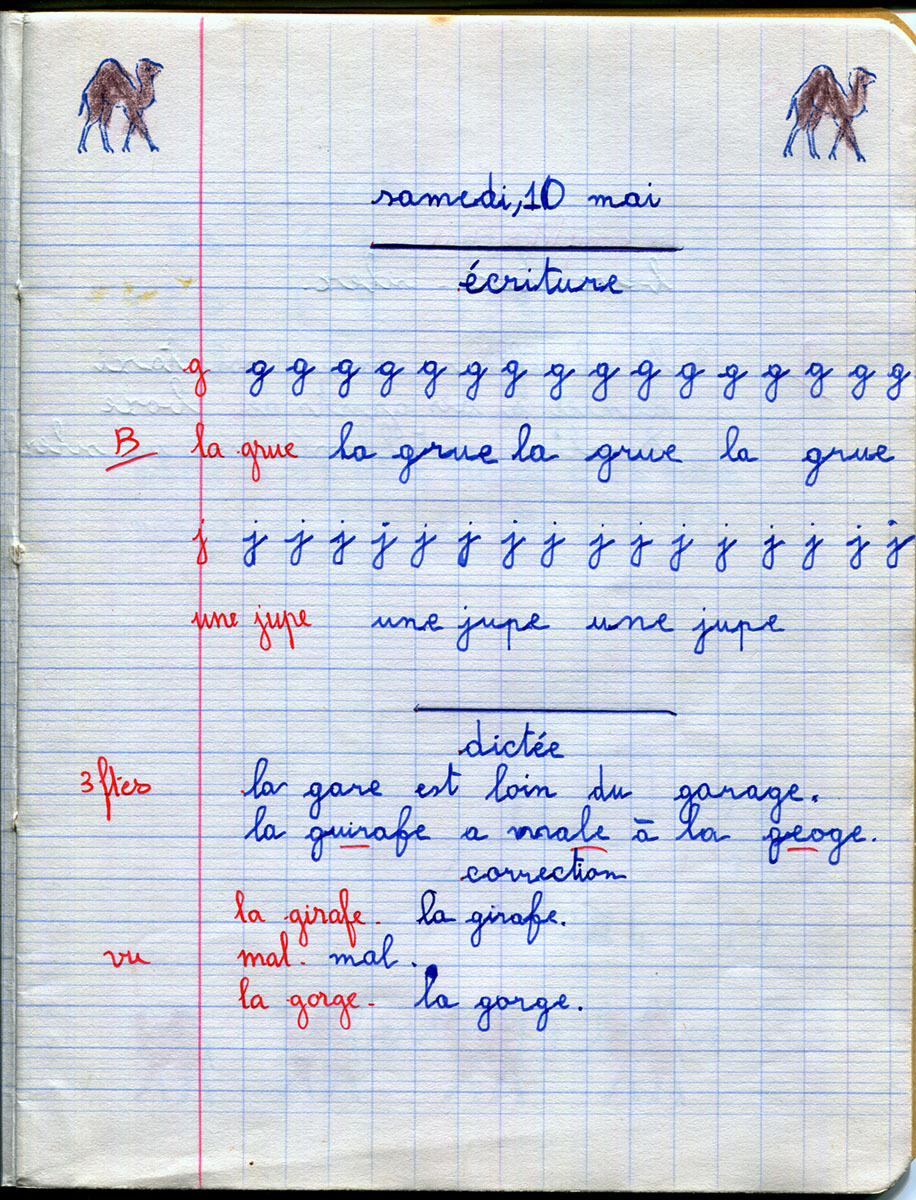 samedi, 10 mai
écriture
g g g g g g g g g g g g g g g g g
B la grue la grue la grue la grue
j j j j j j j j j j j j j j j j j
une jupe une jupe une jupe
dictée
3 ftes la gare est loin du garage.
la guirafe a male à la geoge.
correction
la girafe. la girafe.
vu mal. mal.
la gorge. la gorge.